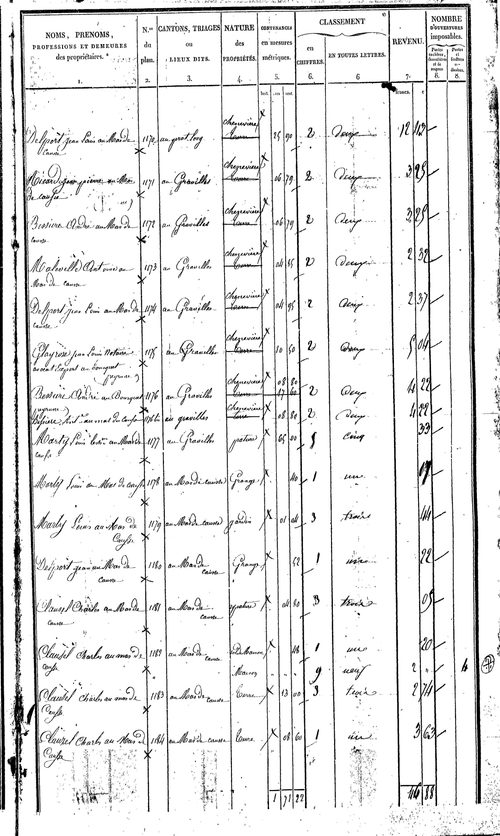 NOMS, PRENOMS, PROFESSIONS ET DEMEURES des propriétaires. 1.
N.os du plan. 2.
CANTONS, TRIAGES ou LIEUX DITS. 3.
NATURE des PROPRIÉTÉS. 4.
CONTENANCES en mesures métriques. 5.
CLASSEMENT
en CHIFFRES. 6.
EN TOUTES LETTRES. 6
REVENU. 7.
NOMBRE D'OUVERTURES imposables.
8. 8.
Delport jean Louis au Mas de causse 1170 au prat long chenevière terre 25 90 2 deux 12 43
Ricard jean pierre au Mas de causse 1171 au Gravilles chenevière terre 06 79 2 deux 3 25
Bessiere André au Mas de causse 1172 au Gravilles chenevière terre 06 79 2 deux 3 25
Maleville Antoine au Mas de causse 1173 au Gravilles chenevière terre 04 85 2 deux 2 32
Delport jean Louis au Mas de causse 1174 au Gravilles chenevière terre 04 95 2 deux 2 37
jean Louis Notaire 1175 au Gravilles chenevière terre 10 50 2 deux 5 04
Bessiere André au Bousquet 1176 au Gravilles chenevière terre 08 80 17 60 2 deux 4 22
au mas de causse 1176 bis au gravilles chenevière terre 08 80 2 deux 4 22
Marty Louis au Mas de causse 1177 au Gravilles pature 65 00 5 cinq 33
Marty Louis au Mas de causse 1178 au Mas de causse Grange 40 1 un 17
Marty Louis au Mas de Causse 1179 au Mas de causse jardin 01 04 3 trois 44
Delport jean au Mas de causse 1180 au Mas de causse Grange 52 1 un 22
Clauzel Charles au Mas de causse 1181 au Mas de causse pature 04 80 3 trois 05
Clauzel Charles au mas de causse 1182 au Mas de causse 48 1 un 20
Maison 9 neuf 2 " 4
Clauzel Charles au mas de Causse 1183 au Mas de causse terre 13 00 3 trois 2 74
Clauzel Charles au Mas de Causse 1184 au Mas de causse terre 08 60 1 un 3 63
1 71 22 46 88